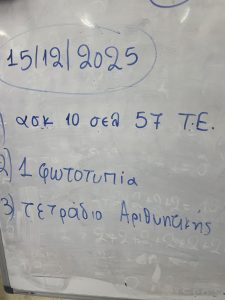 15/12/2025
1) ασκ 10 σελ 57 Τ.Ε.
2) 1 φωτοτυπία
3) τετράδιο Αριθμητικής